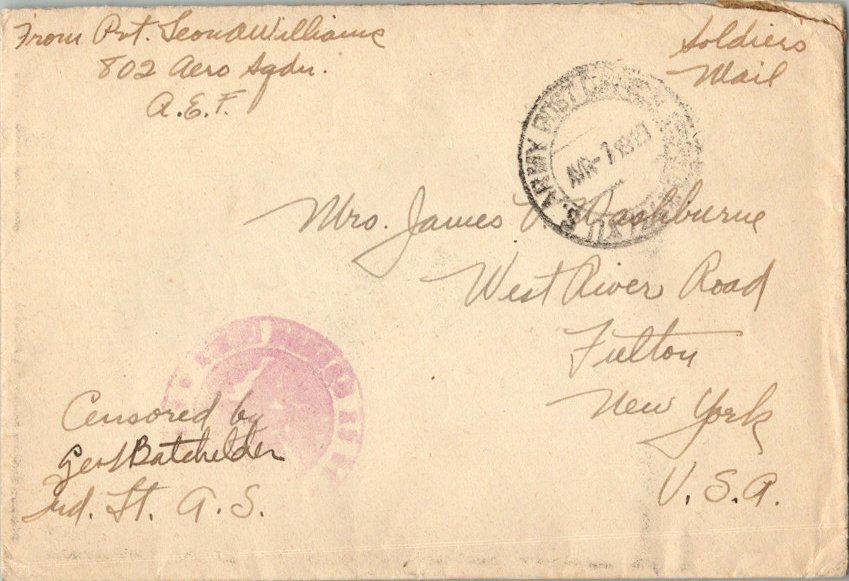 From Pvt. Leon A Williams
802 Aero Sqdn.
A.E.F.
Soldiers
Mail
U.S. ARMY POST OFFICE
AUG-7
Mrs. James Washburne
West River Road
Fulton
New York
U.S.A.
Censored by
Batchelder
2nd. Lt. A.S.